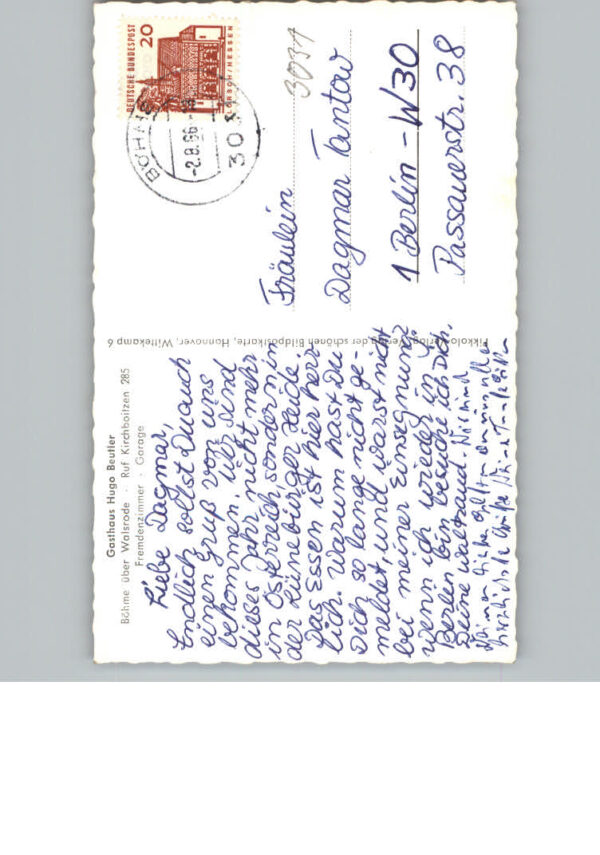 Gasthaus Hugo Beutler
Böhme über Walsrode · Ruf Kirchboitzen 285
Fremdenzimmer · Garage
Liebe Dagmar,
Endlich sollst Du auch
einen Gruß von uns
bekommen. Wir sind
dieses Jahr nicht mehr
in Österreich, sondern in
der Lüneburger Heide.
Das Essen ist hier herr-
lich. Warum hast Du
Dich so lange nicht ge-
meldet, und warst nicht
bei meiner Einsegnung?
Wenn ich wieder in
Berlin bin besuche ich Dich.
Deine Waltraud.
herzlichste Grüße
Pikkolo-Verlag, Verlag der schönen Bildpostkarte, Hannover, Wittekamp 6
DEUTSCHE BUNDESPOST
20
LORSCH/HESSEN
-2.8.66
3031
Fräulein
Dagmar Tantow
1 Berlin - W30
Passauerstr. 38